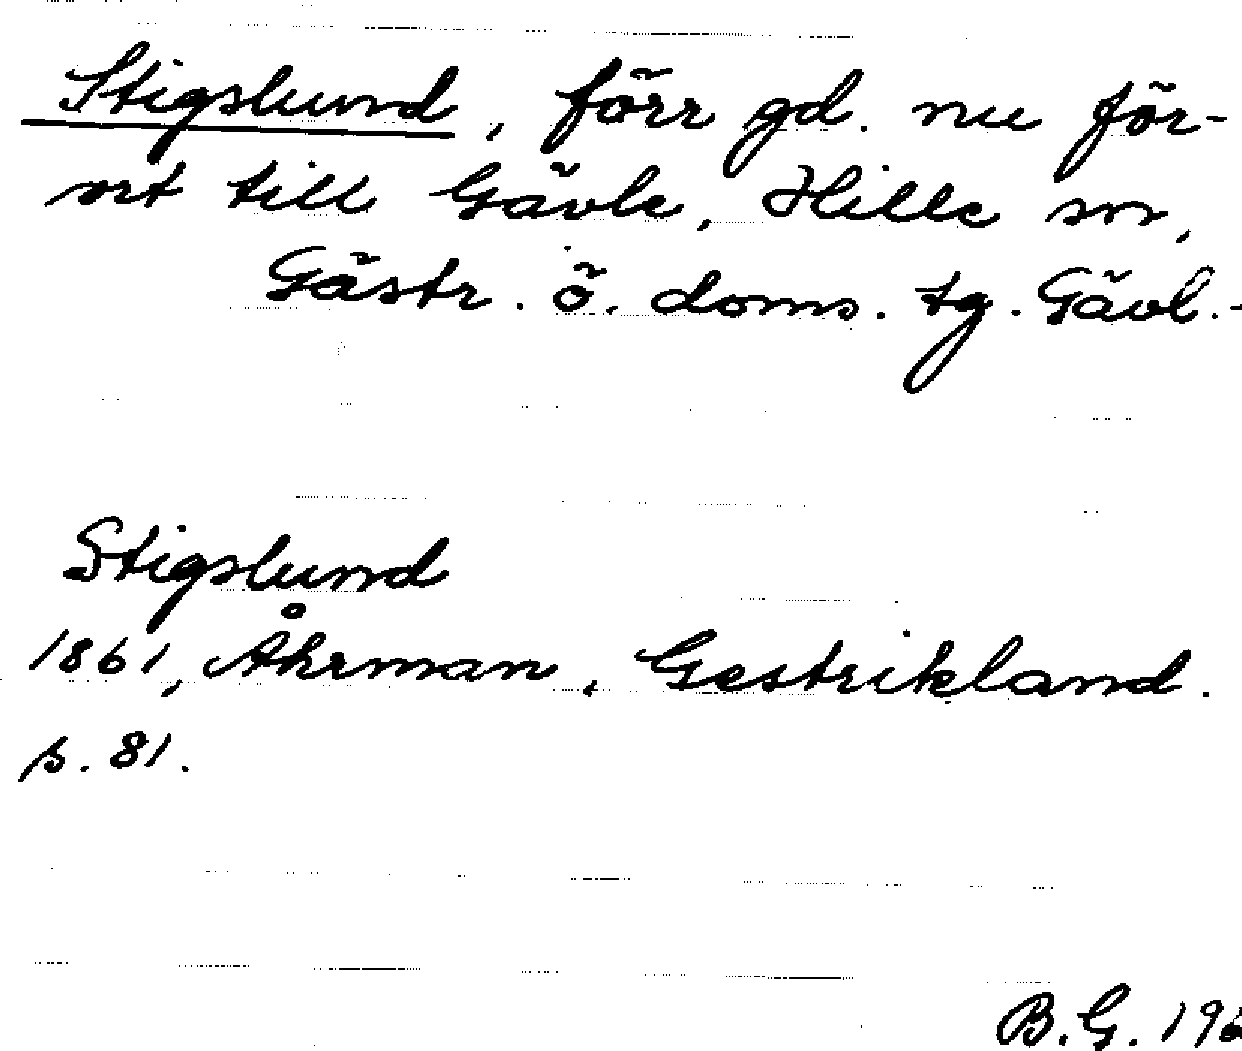 Stigslund, förr gd. nu för-
ort till Gävle, Hille sn,
Gästr. ö. doms. tg. Gävl.-
Stigslund
1861, Åhrman, Gestrikland.
s. 81.
B.G. 196